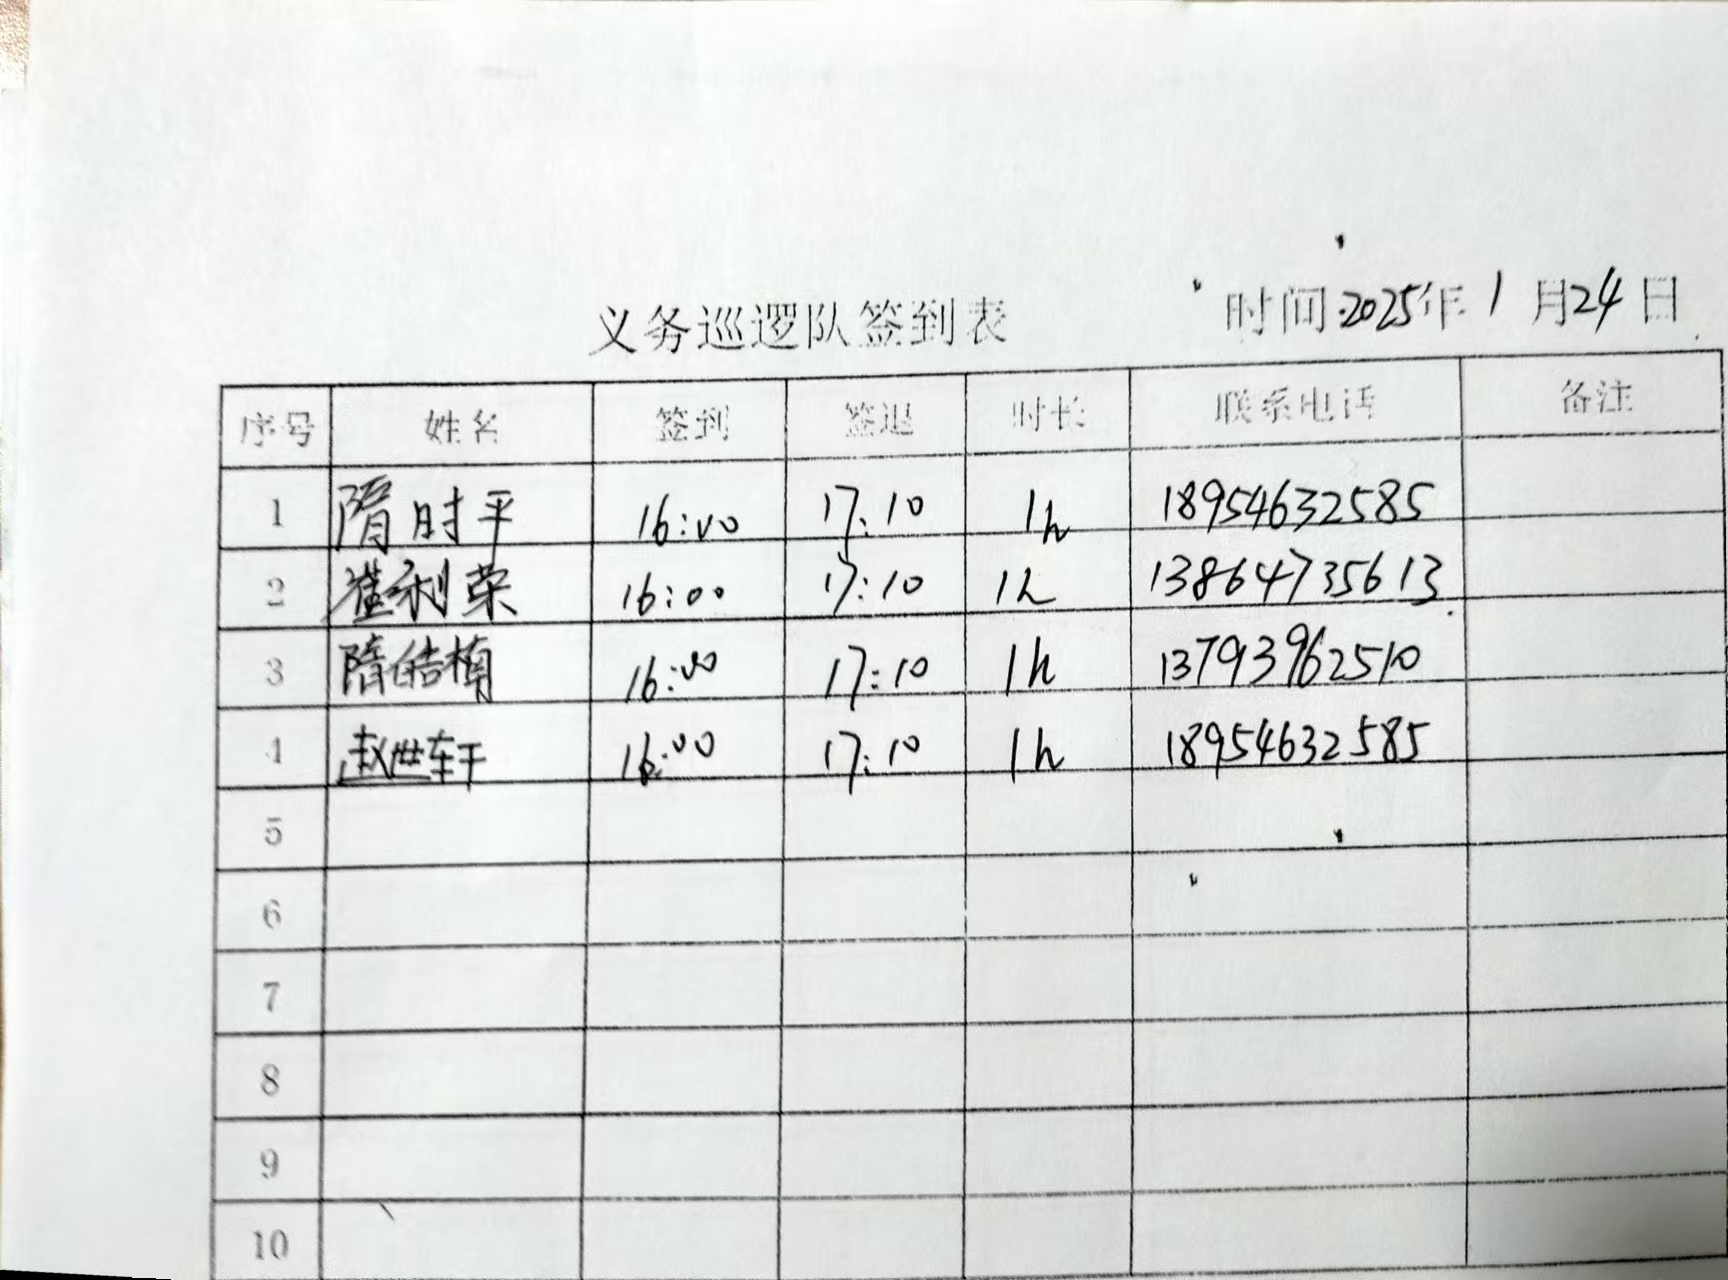 义务巡逻队签到表 时间:2025年1月24日
序号 姓名 签到 签退 时长 联系电话 备注
1 隋时平 16:00 17:10 1h 18954632585
2 崔利荣 16:00 17:10 1h 13864735613
3 隋皓楠 16:00 17:10 1h 13793962510
4 赵世轩 16:00 17:10 1h 18954632585
5
6
7
8
9
10